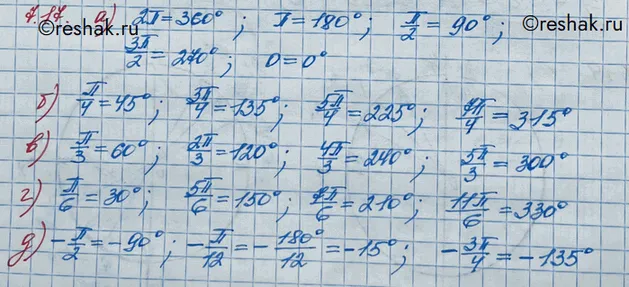 7.17. а) 2π = 360°; π = 180°; π/2 = 90°;
3π/2 = 270°; 0 = 0°
б) π/4 = 45°; 3π/4 = 135°; 5π/4 = 225°; 7π/4 = 315°
в) π/3 = 60°; 2π/3 = 120°; 4π/3 = 240°; 5π/3 = 300°
г) π/6 = 30°; 5π/6 = 150°; 7π/6 = 210°; 11π/6 = 330°
д) -π/2 = -90°; -π/12 = -180°/12 = -15°; -3π/4 = -135°
reshak.ru